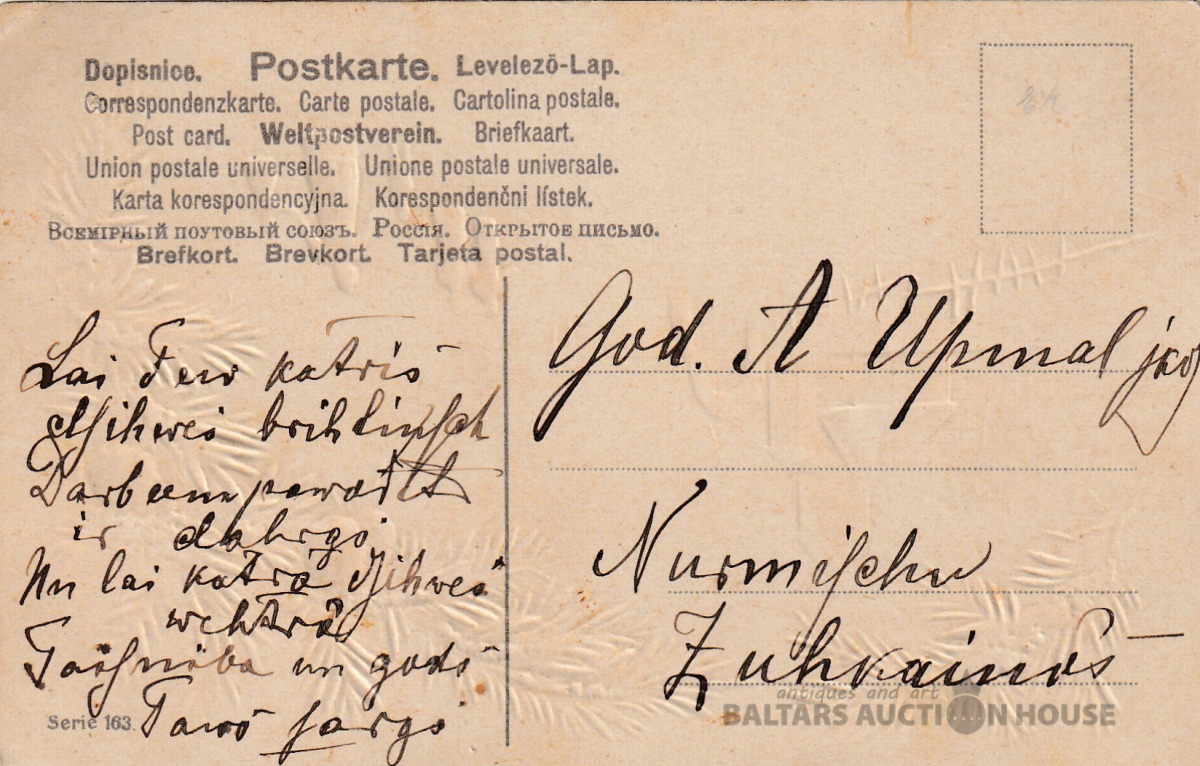 Dopisnice. Postkarte. Levelező-Lap.
Correspondenzkarte. Carte postale. Cartolina postale.
Post card. Weltpostverein. Briefkaart.
Union postale universelle. Unione postale universale.
Karta korespondencyjna. Korespondenční lístek.
Всемірный почтовый союзъ. Россія. Открытое письмо.
Brefkort. Brevkort. Tarjeta postal.
Lai Tew katris
dsihwes brihtinsch
Darbeem pawadits
ir dahrgs
Un lai katrā dsihwes
wehtrā
Taisniba un gods
Taws sargs
Serie 163.
God. A Upmal
Nurmischu
Zuhkainôs
antiques and art
BALTARS AUCTION HOUSE